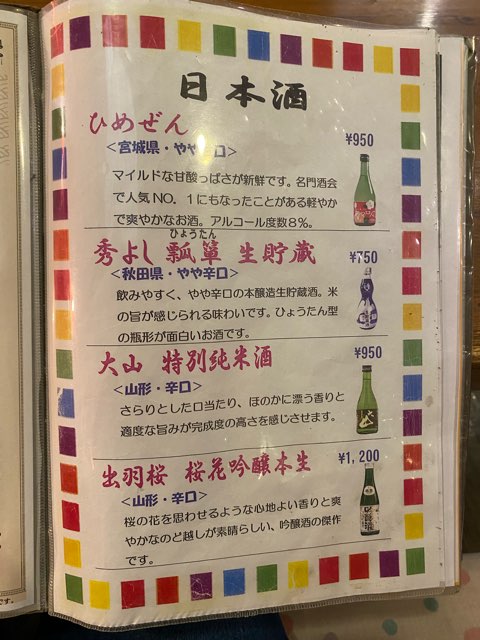 日本酒
ひめぜん
¥950
＜宮城県・やや口＞
マイルドな甘酸っぱさが新鮮です。名門酒会
で人気NO．1にもなったことがある軽やか
で爽やかなお酒。アルコール度数8％。
ひょうたん
秀よし 瓢箪 生貯蔵
¥750
＜秋田県・やや辛口＞
飲みやすく、やや辛口の本醸造生貯蔵酒。米
の旨が感じられる味わいです。ひょうたん型
の瓶形が面白いお酒です。
大山 特別純米酒
¥950
＜山形・辛口＞
さらりとした口当たり、ほのかに漂う香りと
適度な旨みが完成度の高さを感じさせます。
出羽桜 桜花吟醸本生
¥1,200
＜山形・辛口＞
桜の花を思わせるような心地よい香りと爽
やかなのど越しが素晴らしい、吟醸酒の傑作
です。